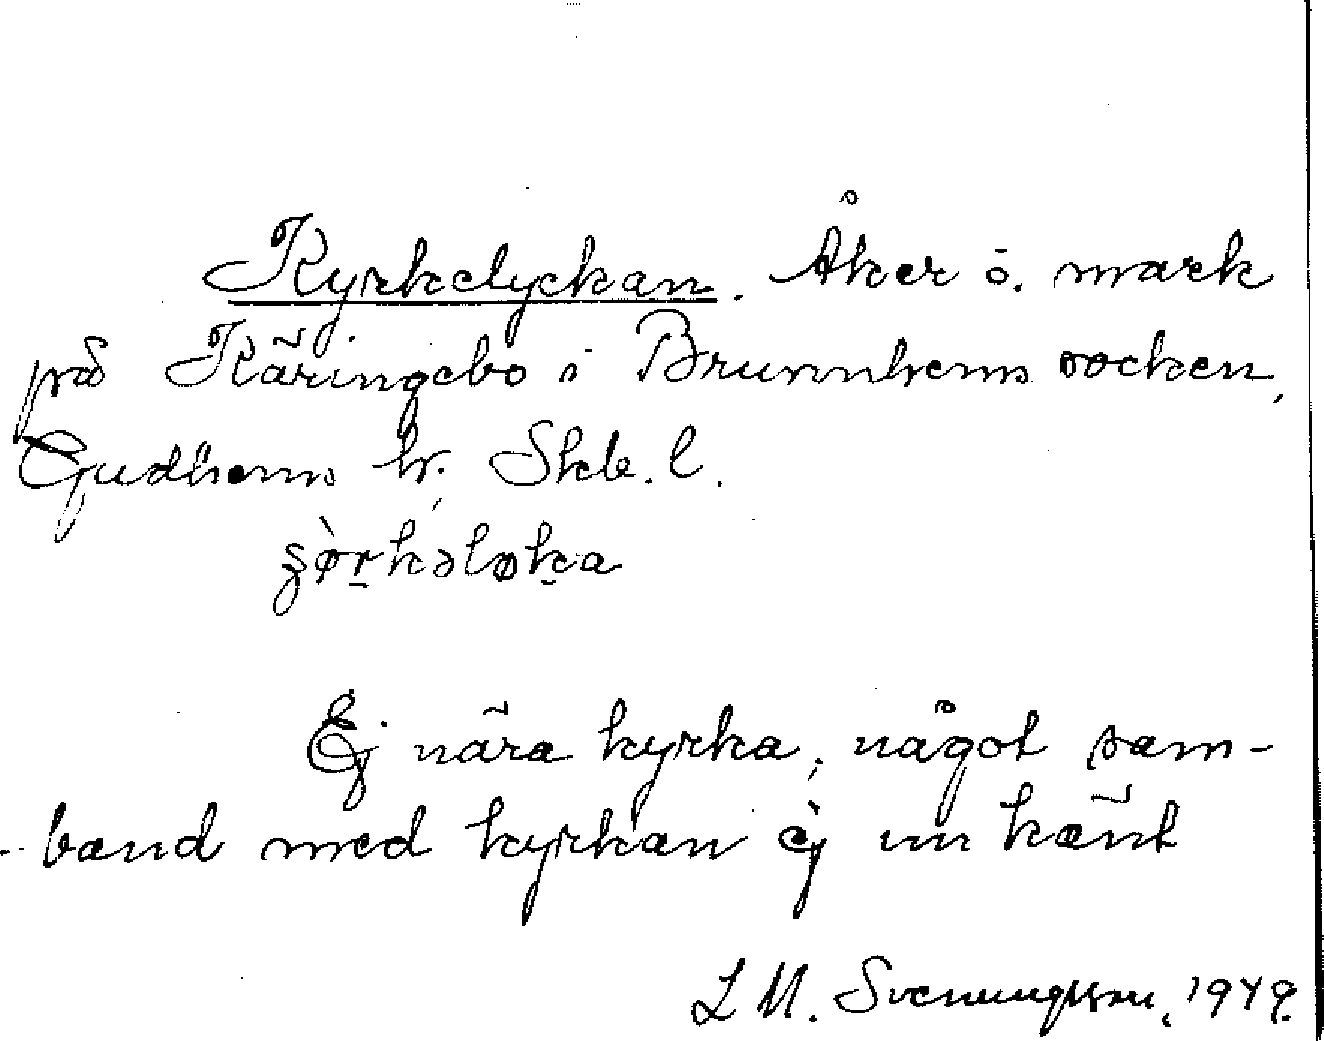 Kyrkelyckan. Åker o. mark
på Käringebo i Brunnhems socken,
Gudhems hr. Skb. l.
Ej nära kyrka, något sam-
band med kyrkan ej nu känt
L M. Svenungsson, 1949.